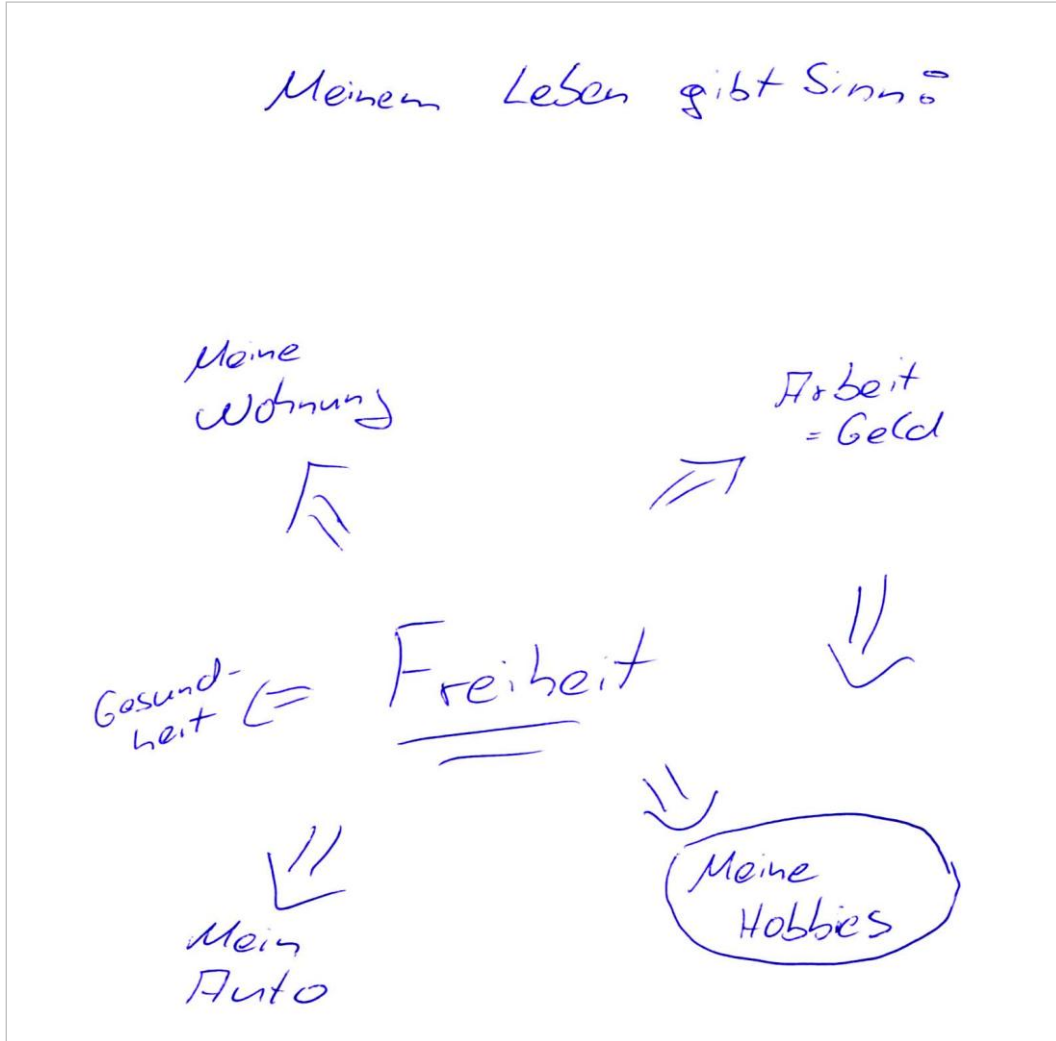 Meinem Leben gibt Sinn:
Meine
Wohnung
Arbeit
= Geld
Freiheit
Gesund-
heit
Meine
Hobbies
Mein
Auto